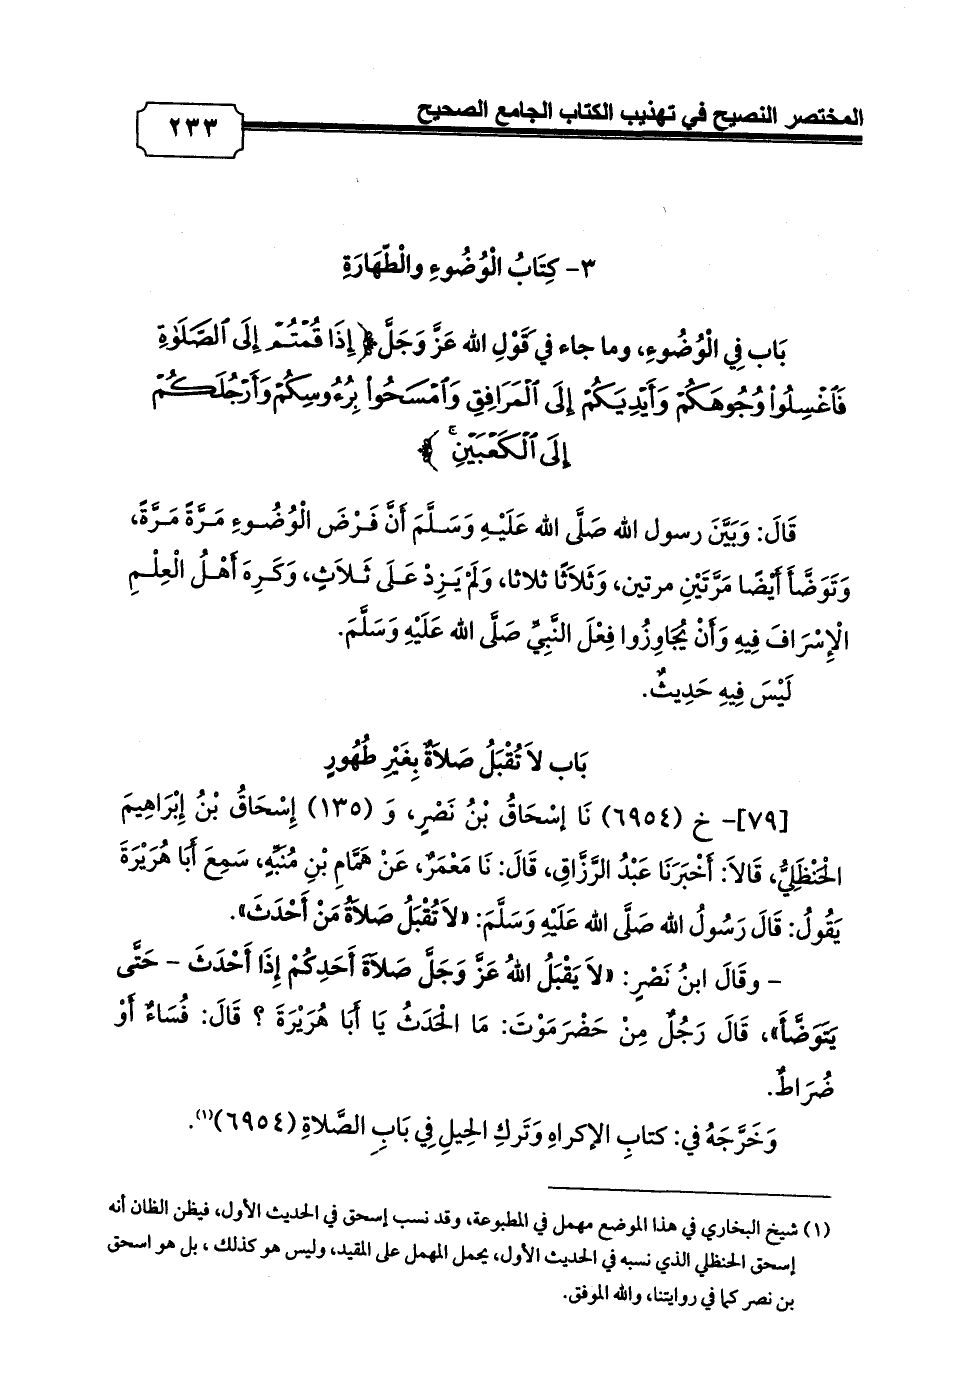 المختصر النصيح في تهذيب الكتاب الجامع الصحيح
٢٣٣
٣- كِتَابُ الْوُضُوءِ والْطَّهَارَةِ
بَاب فِي الْوُضُوءِ، وما جاء في قَوْلِ الله عَزَّ وَجَلَّ ﴿إِذَا قُمْتُمْ إِلَى ٱلصَّلَوٰةِ
فَٱغْسِلُوا۟ وُجُوهَكُمْ وَأَيْدِيَكُمْ إِلَى ٱلْمَرَافِقِ وَٱمْسَحُوا۟ بِرُءُوسِكُمْ وَأَرْجُلَكُمْ
إِلَى ٱلْكَعْبَيْنِ ۚ﴾
قَالَ: وَبَيَّنَ رسول الله صَلَّى الله عَلَيْهِ وَسَلَّمَ أَنَّ فَرْضَ الْوُضُوءِ مَرَّةً مَرَّةً،
وَتَوَضَّأَ أَيْضًا مَرَّتَيْنِ مرتين، وَثَلاَثًا ثلاثا، وَلَمْ يَزِدْ عَلَى ثَلاَثٍ، وَكَرِهَ أَهْلُ الْعِلْمِ
الْإِسْرَافَ فِيهِ وَأَنْ يُجَاوِزُوا فِعْلَ النَّبِيِّ صَلَّى الله عَلَيْهِ وَسَلَّمَ.
لَيْسَ فِيهِ حَدِيثٌ.
بَاب لاَ تُقْبَلُ صَلاَةٌ بِغَيْرِ طُهُورٍ
[٧٩]- خ (٦٩٥٤) نَا إِسْحَاقُ بْنُ نَصْرٍ، وَ (١٣٥) إِسْحَاقُ بْنُ إِبْرَاهِيمَ
الْحَنْظَلِيُّ، قَالاَ: أَخْبَرَنَا عَبْدُ الرَّزَّاقِ، قَالَ: نَا مَعْمَرٌ، عَنْ هَمَّامِ بْنِ مُنَبِّهٍ، سَمِعَ أَبَا هُرَيْرَةَ
يَقُولُ: قَالَ رَسُولُ الله صَلَّى الله عَلَيْهِ وَسَلَّمَ: «لاَ تُقْبَلُ صَلاَةُ مَنْ أَحْدَثَ».
- وقَالَ ابنُ نَصْرٍ: «لاَ يَقْبَلُ اللهُ عَزَّ وَجَلَّ صَلاَةَ أَحَدِكُمْ إِذَا أَحْدَثَ - حَتَّى
يَتَوَضَّأَ»، قَالَ رَجُلٌ مِنْ حَضْرَمَوْتَ: مَا الْحَدَثُ يَا أَبَا هُرَيْرَةَ ؟ قَالَ: فُسَاءٌ أَوْ
ضُرَاطٌ.
وَخَرَّجَهُ في: كتابِ الإكراهِ وَتَركِ الحِيلِ فِي بَابِ الصَّلاةِ (٦٩٥٤)(١).
(١) شيخ البخاري في هذا الموضع مهمل في المطبوعة، وقد نسب إسحق في الحديث الأول، فيظن الظان أنه
إسحق الحنظلي الذي نسبه في الحديث الأول، يحمل المهمل على المقيد، وليس هو كذلك ، بل هو اسحق
بن نصر كما في روايتنا، والله الموفق.